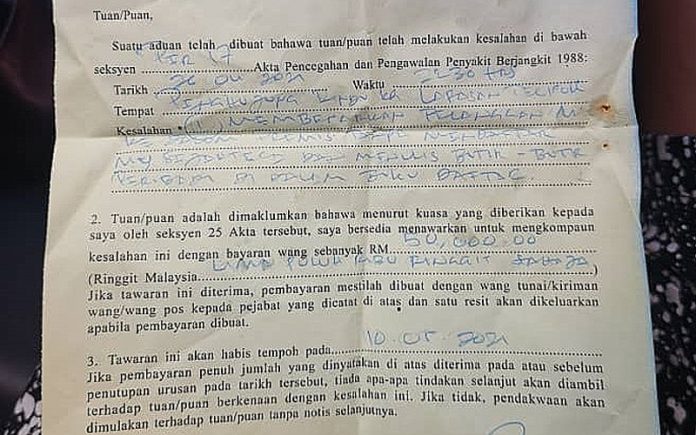 Tuan/Puan,
Suatu aduan telah dibuat bahawa tuan/puan telah melakukan kesalahan di bawah
seksyen ............ Akta Pencegahan dan Pengawalan Penyakit Berjangkit 1988:
Tarikh 26 04 2021 Waktu 2230 HRS
Tempat
Kesalahan * (1) MEMBENARKAN PELANGGAN M
MENDAFTAR
MY SEJAHTERA DAN MENULIS BUTIR-BUTIR
DI DALAM BUKU DAFTAR.
2. Tuan/puan adalah dimaklumkan bahawa menurut kuasa yang diberikan kepada
saya oleh seksyen 25 Akta tersebut, saya bersedia menawarkan untuk mengkompaun
kesalahan ini dengan bayaran wang sebanyak RM 50,000.00
(Ringgit Malaysia LIMA PULUH RIBU RINGGIT SAHAJA)
Jika tawaran ini diterima, pembayaran mestilah dibuat dengan wang tunai/kiriman
wang/wang pos kepada pejabat yang dicatat di atas dan satu resit akan dikeluarkan
apabila pembayaran dibuat.
3. Tawaran ini akan habis tempoh pada 10.05.2021
Jika pembayaran penuh jumlah yang dinyatakan di atas diterima pada atau sebelum
penutupan urusan pada tarikh tersebut, tiada apa-apa tindakan selanjut akan diambil
terhadap tuan/puan berkenaan dengan kesalahan ini. Jika tidak, pendakwaan akan
dimulakan terhadap tuan/puan tanpa notis selanjutnya.